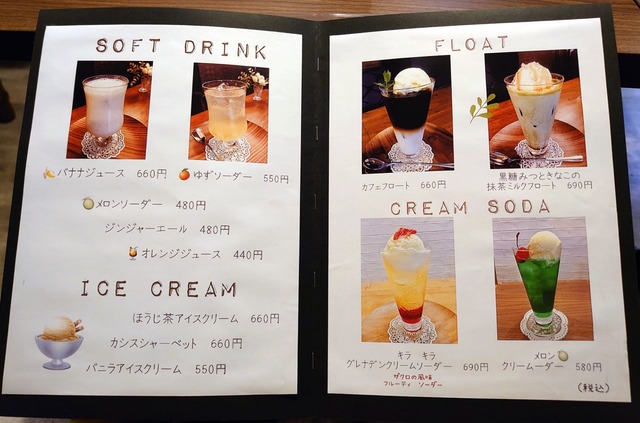 SOFT DRINK
バナナジュース 660円
ゆずソーダー 550円
メロンソーダー 480円
ジンジャーエール 480円
オレンジジュース 440円
ICE CREAM
ほうじ茶アイスクリーム 660円
カシスシャーベット 660円
バニラアイスクリーム 550円
FLOAT
カフェフロート 660円
黒糖みつときなこの
抹茶ミルクフロート 690円
CREAM SODA
キラ キラ
グレナデンクリームソーダー 690円
ザクロの風味
フルーティ ソーダー
メロン
クリームソーダー 580円
(税込)